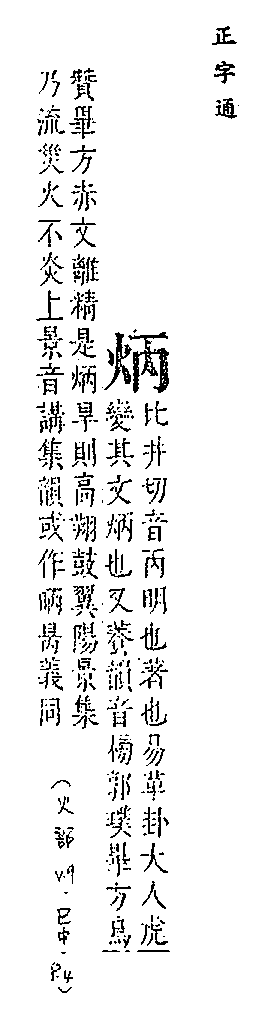 正字通
炳
比丼切音丙明也著也易革卦大人虎
變其文炳也又養韻音榜郭璞畢方鳥
贊畢方赤文離精是炳旱則高翔鼓翼陽景集
乃流災火不炎上景音講集韻或作昞昺義同
(火部 V.9.巳中.P.4)